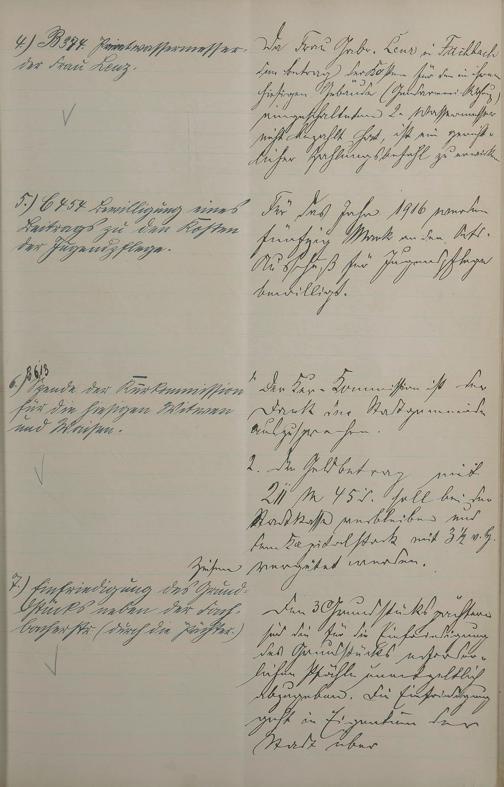 4.) B374. Privatwassermesser
der Frau Lenz.
Da Frau Gebr. Lenz in Fischbach
den Betrag der Kosten für den in ihrem
hiesigen Gebäude
eingeschalteten 2. Wassermesser
nicht bezahlt hat, ist ein gericht-
licher Zahlungsbefehl zu erwirken
5.) C454 Bewilligung eines
Beitrags zu den Kosten
der Jugendpflege.
Für das Jahr 1916 werden
fünfzig Mark an den Orts-
Ausschuß für Jugendpflege
bewilligt.
6.) B613
Spende der Kurkommission
für die hiesigen Witwen
und Waisen.
1. Der Kur-Kommission ist der
Dank der Stadtgemeinde
auszusprechen.
2. Der Geldbetrag mit
211 M 45 d. soll bei der
Stadtkasse verbleiben und
dem Kapitalstock mit 3½ v.H.
verzinst werden.
7.) Einfriedigung des Grund-
stücks neben der
(durch die Pächter.)
Den 3 Grundstückspächtern
sind die für die Einfriedigung
des Grundstücks erforder-
lichen Pfähle unentgeltlich
abzugeben. Die Einfriedigung
geht in Eigentum der
Stadt über